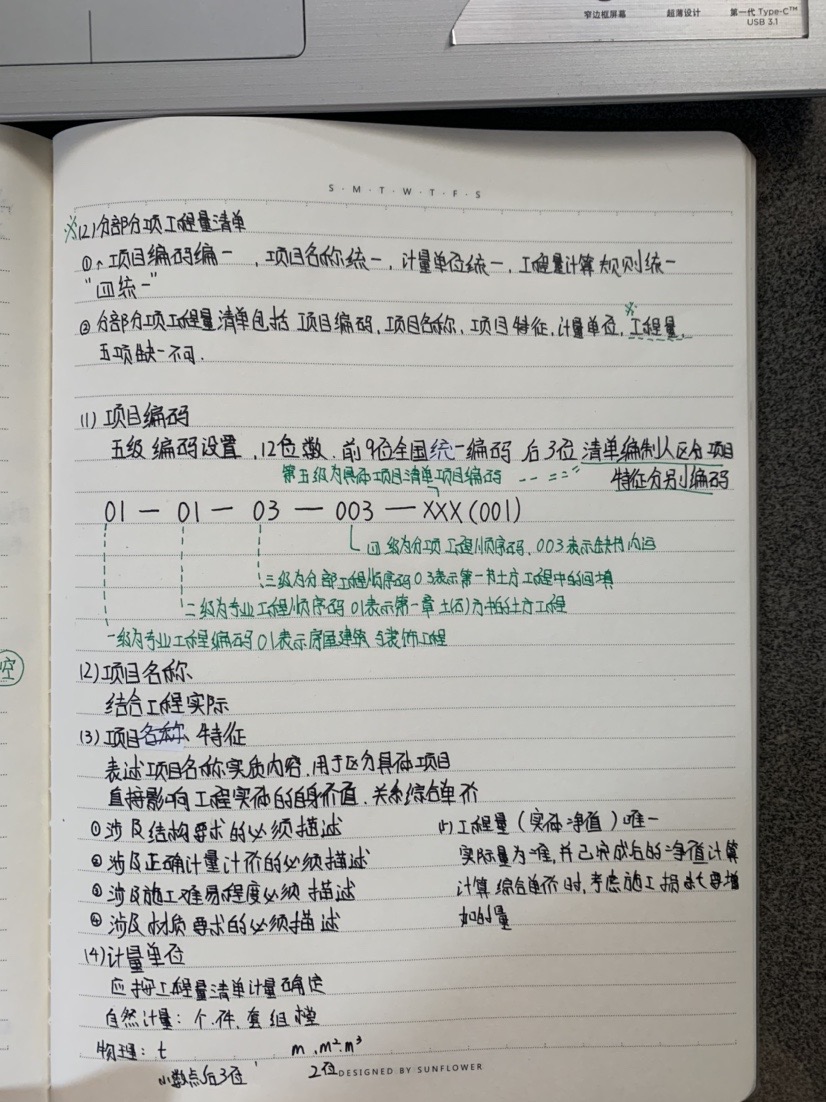 窄边框屏幕
超薄设计
第一代 Type-C™
USB 3.1
S·M·T·W·T·F·S
※(2)分部分项工程量清单
①、项目编码编一，项目名称统一，计量单位统一，工程量计算规则统一
"四统一"
②分部分项工程量清单包括 项目编码，项目名称，项目特征，计量单位，※工程量，
五项缺一不可．
(1) 项目编码
五级编码设置，12位数．前9位全国统一编码 后3位 清单编制人区分项目
第五级为具体项目清单项目编码 特征分别编码
01 — 01 — 03 — 003 — XXX (001)
四级为分项工程顺序码，003表示
三级为分部工程顺序码03表示第一节土方工程中的回填
二级为专业工程顺序码 01表示第一章土(石)方中的土方工程
一级为专业工程编码01表示房屋建筑与装饰工程
空
(2)项目名称
结合工程实际
(3) 项目名称 特征
表述项目名称实质内容，用于区分具体项目
直接影响工程实体的自身价值，关系综合单价
①涉及结构要求的必须描述
②涉及正确计量计价的必须描述
③涉及施工难易程度必须描述
④涉及材质要求的必须描述
(5) 工程量（实体净值）唯一
实际量为准，并已完成后的净值计算
计算综合单价时，考虑施工损耗要增
加的量
(4)计量单位
应按工程量清单计量确定
自然计量：个．件．套 组 樘
物理：t m．m²．m³
小数点后3位 2位
DESIGNED BY SUNFLOWER